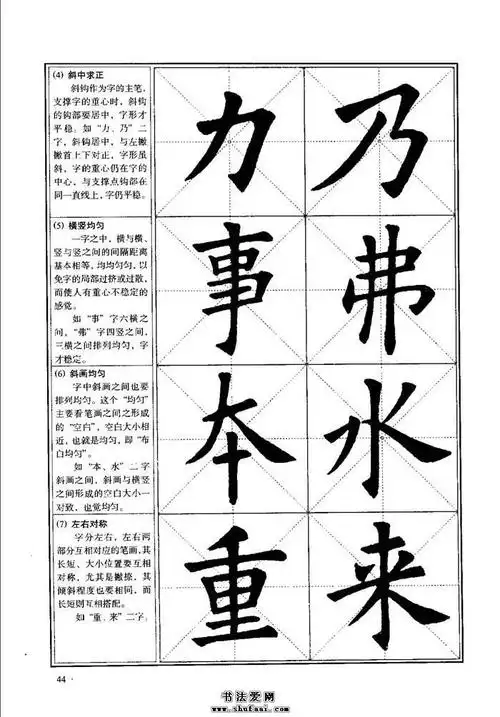 (4) 斜中求正
斜钩作为字的主笔,
支撑字的重心时, 斜钩
的钩部要居中, 字形才
平稳。如“力、乃”二
字, 斜钩居中, 与左撇
撇首上下对正, 字形虽
斜, 字的重心仍在字的
中心, 与支撑点钩部在
同一直线上, 字仍平稳。
力 乃
(5) 横竖均匀
一字之中, 横与横、
竖与竖之间的间隔距离
基本相等, 均均匀匀, 以
免字的局部过挤或过散,
而使人有重心不稳定的
感觉。
如“事”字六横之
间, “弗”字四竖之间,
三横之间排列均匀, 字
才稳定。
事 弗
(6) 斜画均匀
字中斜画之间也要
排列均匀。这个“均匀”
主要看笔画之间之形成
的“空白”, 空白大小相
近, 也就是均匀, 即“布
白均匀”。
如“本、水”二字
斜画之间, 斜画与横竖
之间形成的空白大小一
对致、也觉均匀。
本 水
(7) 左右对称
字分左右, 左右两
部分互相对应的笔画, 其
长短、大小位置要互相
对称, 尤其是撇捺, 其
倾斜程度也要相同, 而
长短则互相搭配。
如“重、来”二字。
重 来
44 ·
书法爱网
www.shufani.com